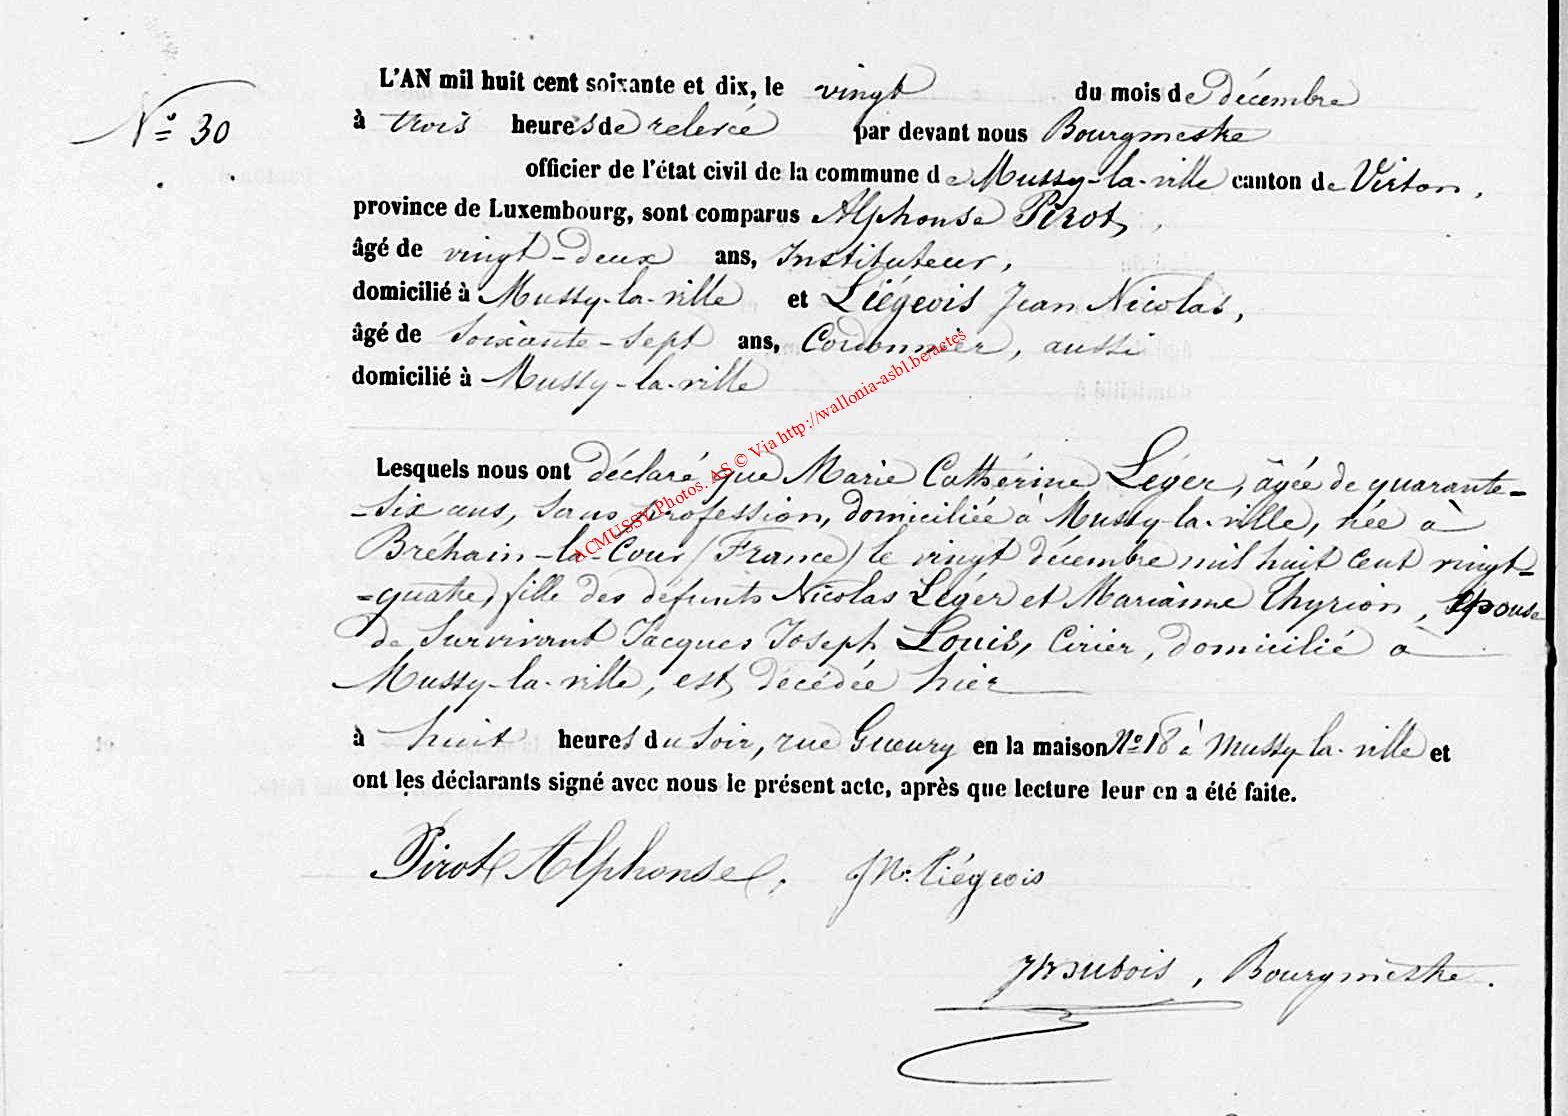 L'AN mil huit cent soixante et dix, le vingt du mois de décembre
N° 30
à trois heures de relevée par devant nous Bourgmestre
officier de l'état civil de la commune de Mussy-la-ville canton de Virton,
province de Luxembourg, sont comparus Alphonse Pirot,
âgé de vingt-deux ans, Instituteur,
domicilié à Mussy-la-ville et Liégeois Jean Nicolas,
âgé de soixante-sept ans, Cordonnier, aussi
domicilié à Mussy-la-ville
Lesquels nous ont déclaré que Marie Cathérine Léger, âgée de quarante-
-six ans, sans profession, domiciliée à Mussy-la-ville, née à
Bréhain-la-Cour (France) le vingt décembre mil huit cent vingt-
-quatre, fille des défunts Nicolas Léger et Marianne Thyrion, Epouse
de survivant Jacques Joseph Louis, Cirier, domicilié à
Mussy-la-ville, est décédée hier
à huit heures du soir, rue Gueury en la maison N° 18 à Mussy la-ville et
ont les déclarants signé avec nous le présent acte, après que lecture leur en a été faite.
Pirot Alphonse. JN. Liégeois
Dubois, Bourgmestre.
ACMUSSY. Photos. AS © Via http://wallonia-asbl.be/actes